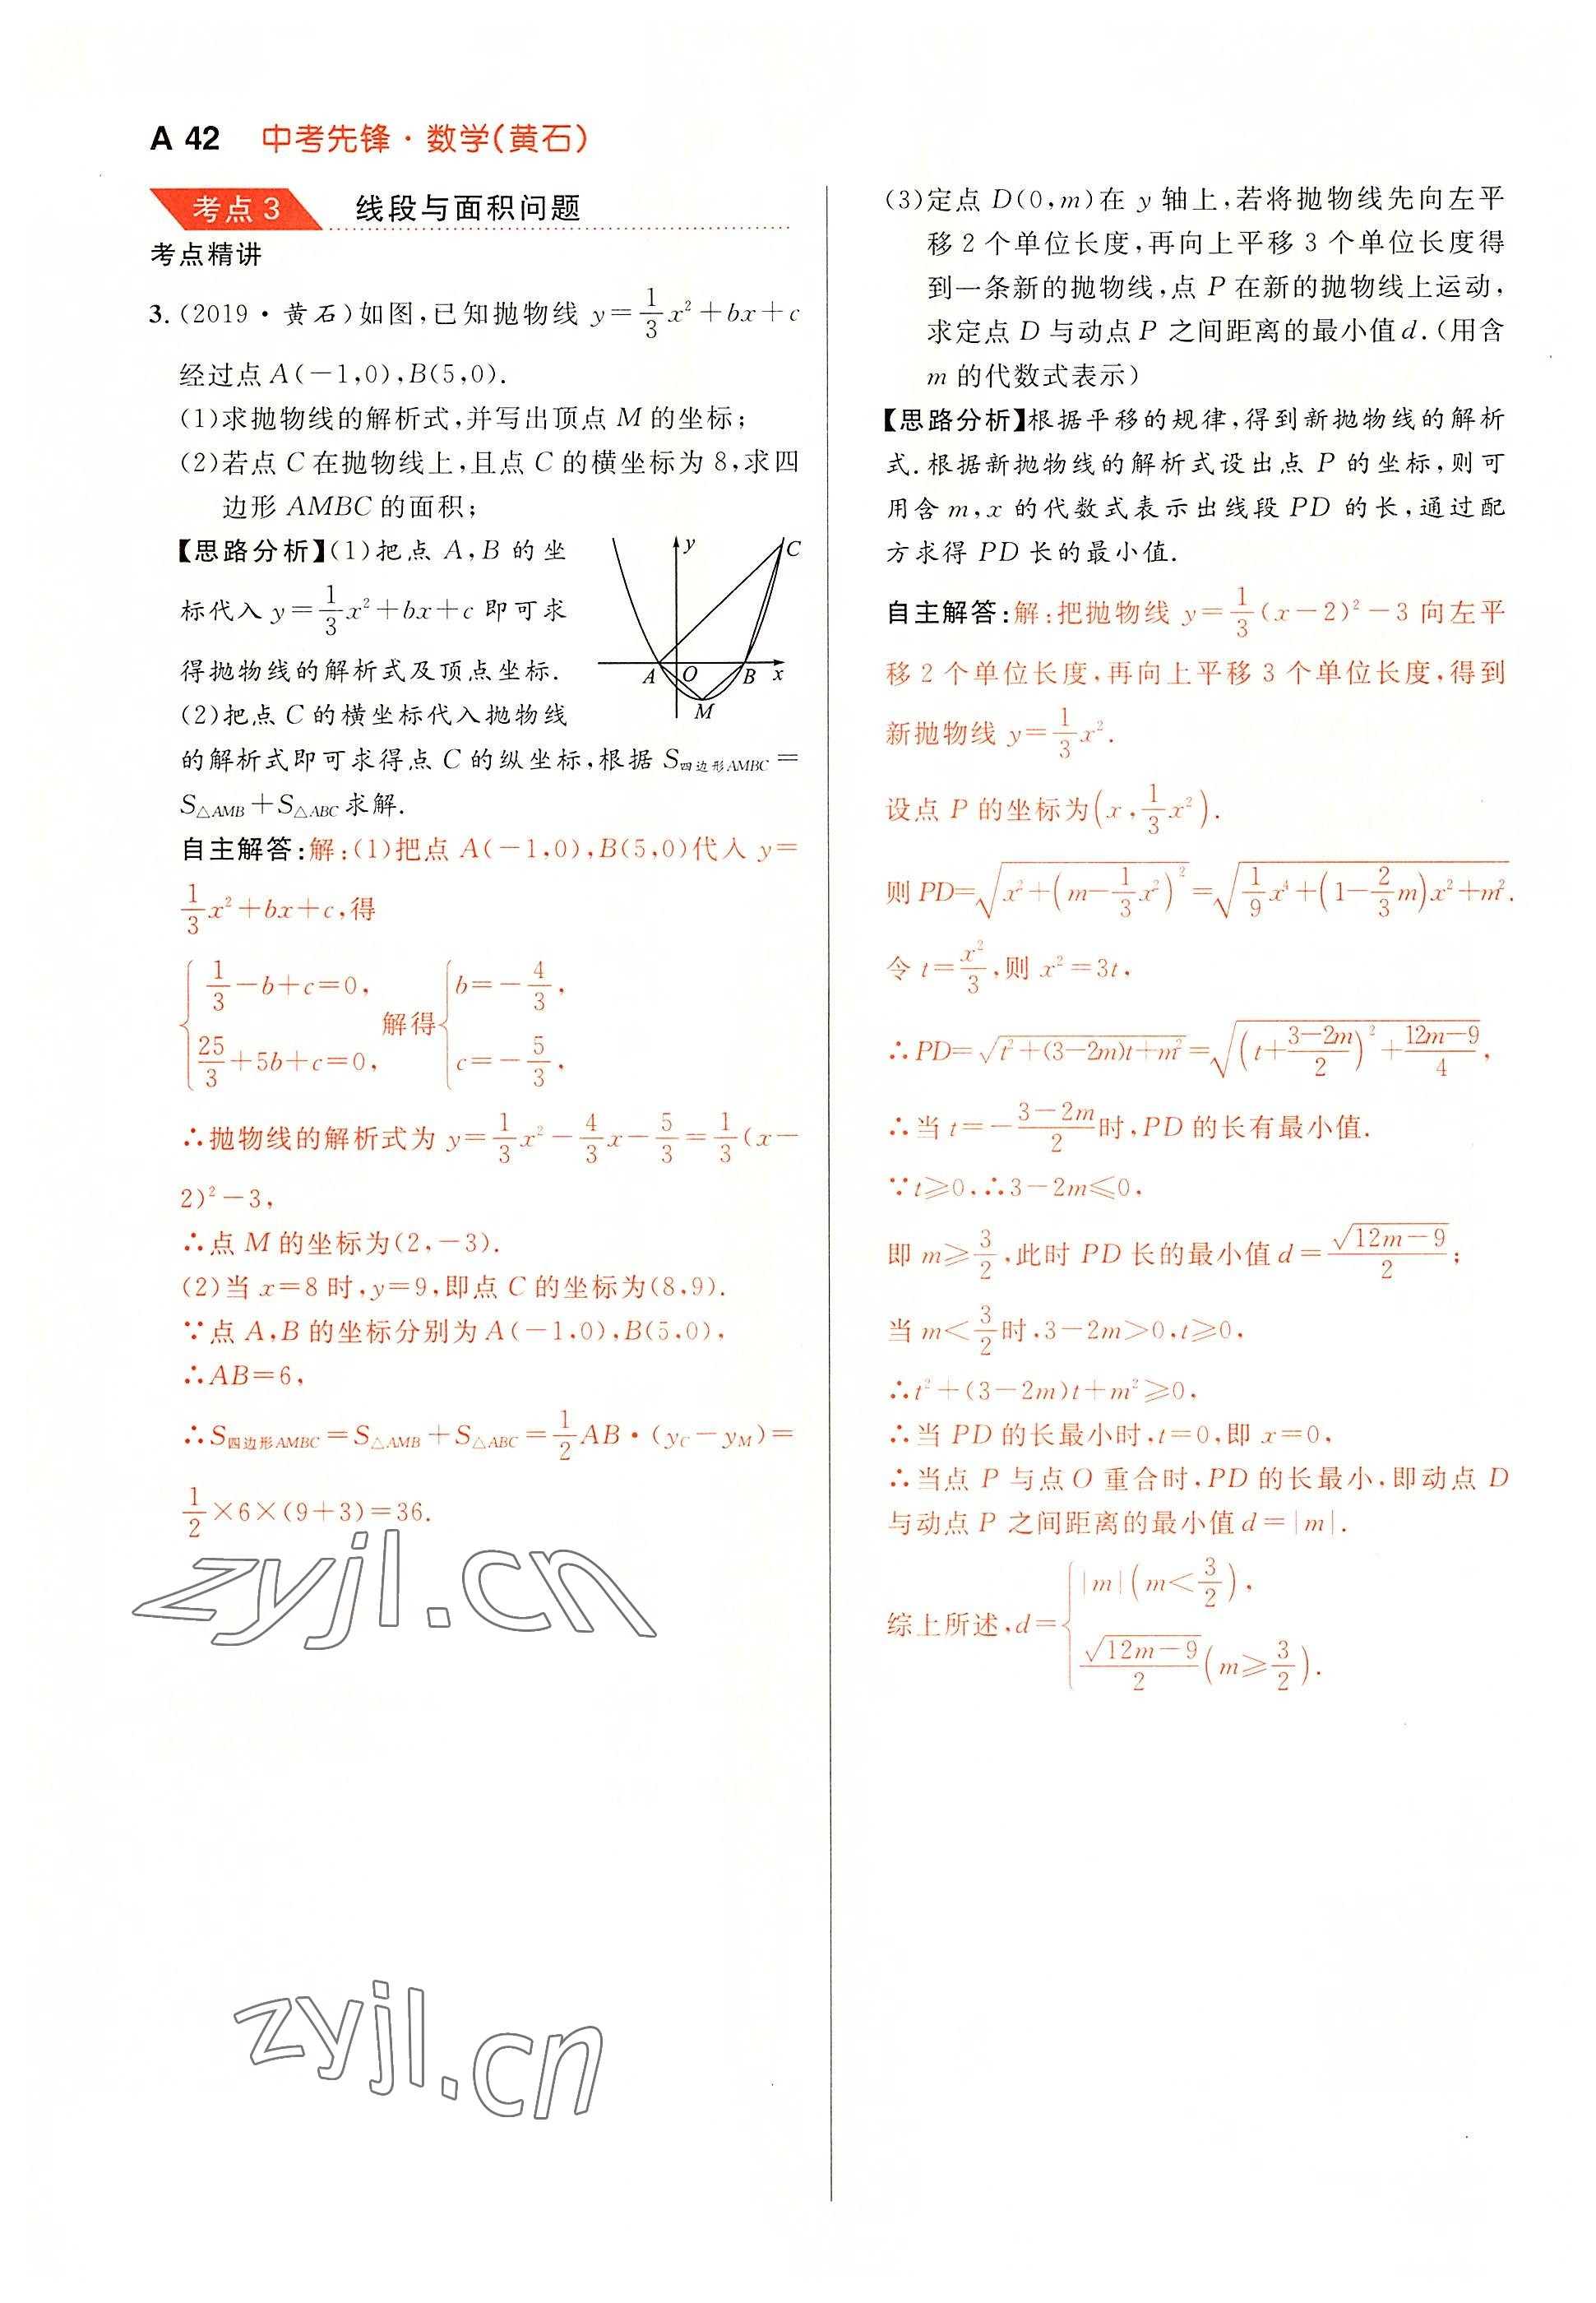 A 42 中考先锋·数学(黄石)
考点 3 线段与面积问题
考点精讲
3.(2019·黄石)如图,已知抛物线 y=1/3x²+bx+c
经过点A(-1,0),B(5,0).
(1)求抛物线的解析式,并写出顶点 M 的坐标;
(2)若点 C 在抛物线上,且点 C 的横坐标为 8,求四
边形 AMBC 的面积;
【思路分析】(1)把点 A,B 的坐
标代入 y=1/3x²+bx+c 即可求
得抛物线的解析式及顶点坐标.
(2)把点 C 的横坐标代入抛物线
y
C
A
O
B
x
M
的解析式即可求得点 C 的纵坐标,根据 S四边形AMBC=
S△AMB+S△ABC求解.
自主解答:解:(1)把点 A(-1,0),B(5,0)代入 y=
1/3x²+bx+c,得
{1/3-b+c=0, 25/3+5b+c=0, 解得{b=-4/3, c=-5/3,
∴抛物线的解析式为 y=1/3x²-4/3x-5/3=1/3(x-
2)²-3,
∴点 M 的坐标为(2,-3).
(2)当 x=8 时,y=9,即点 C 的坐标为(8,9).
∵点 A,B 的坐标分别为 A(-1,0),B(5,0),
∴AB=6,
∴S四边形AMBC=S△AMB+S△ABC=1/2AB·(yC-yM)=
1/2×6×(9+3)=36.
zyjl.cn
zyjl.cn
(3)定点 D(0,m)在 y 轴上,若将抛物线先向左平
移 2 个单位长度,再向上平移 3 个单位长度得
到一条新的抛物线,点 P 在新的抛物线上运动,
求定点 D 与动点 P 之间距离的最小值d.(用含
m 的代数式表示)
【思路分析】根据平移的规律,得到新抛物线的解析
式.根据新抛物线的解析式设出点 P 的坐标,则可
用含 m,x 的代数式表示出线段 PD 的长,通过配
方求得 PD 长的最小值.
自主解答:解:把抛物线 y=1/3(x-2)²-3 向左平
移 2 个单位长度,再向上平移 3 个单位长度,得到
新抛物线 y=1/3x².
设点 P 的坐标为(x,1/3x²).
则 PD=√(x²+(m-1/3x²)²)=√(1/9x⁴+(1-2/3m)x²+m²).
令 t=x²/3,则 x²=3t,
∴PD=√(t²+(3-2m)t+m²)=√((t+(3-2m)/2)²+(12m-9)/4),
∴当 t=-(3-2m)/2时,PD 的长有最小值.
∵t≥0,∴3-2m≤0,
即 m≥3/2,此时 PD 长的最小值d=√(12m-9)/2;
当 m<3/2时,3-2m>0,t≥0,
∴t²+(3-2m)t+m²≥0,
∴当 PD 的长最小时,t=0,即 x=0,
∴当点 P 与点O 重合时,PD 的长最小,即动点 D
与动点 P 之间距离的最小值d=|m|.
综上所述,d={|m|(m<3/2), √(12m-9)/2(m≥3/2).